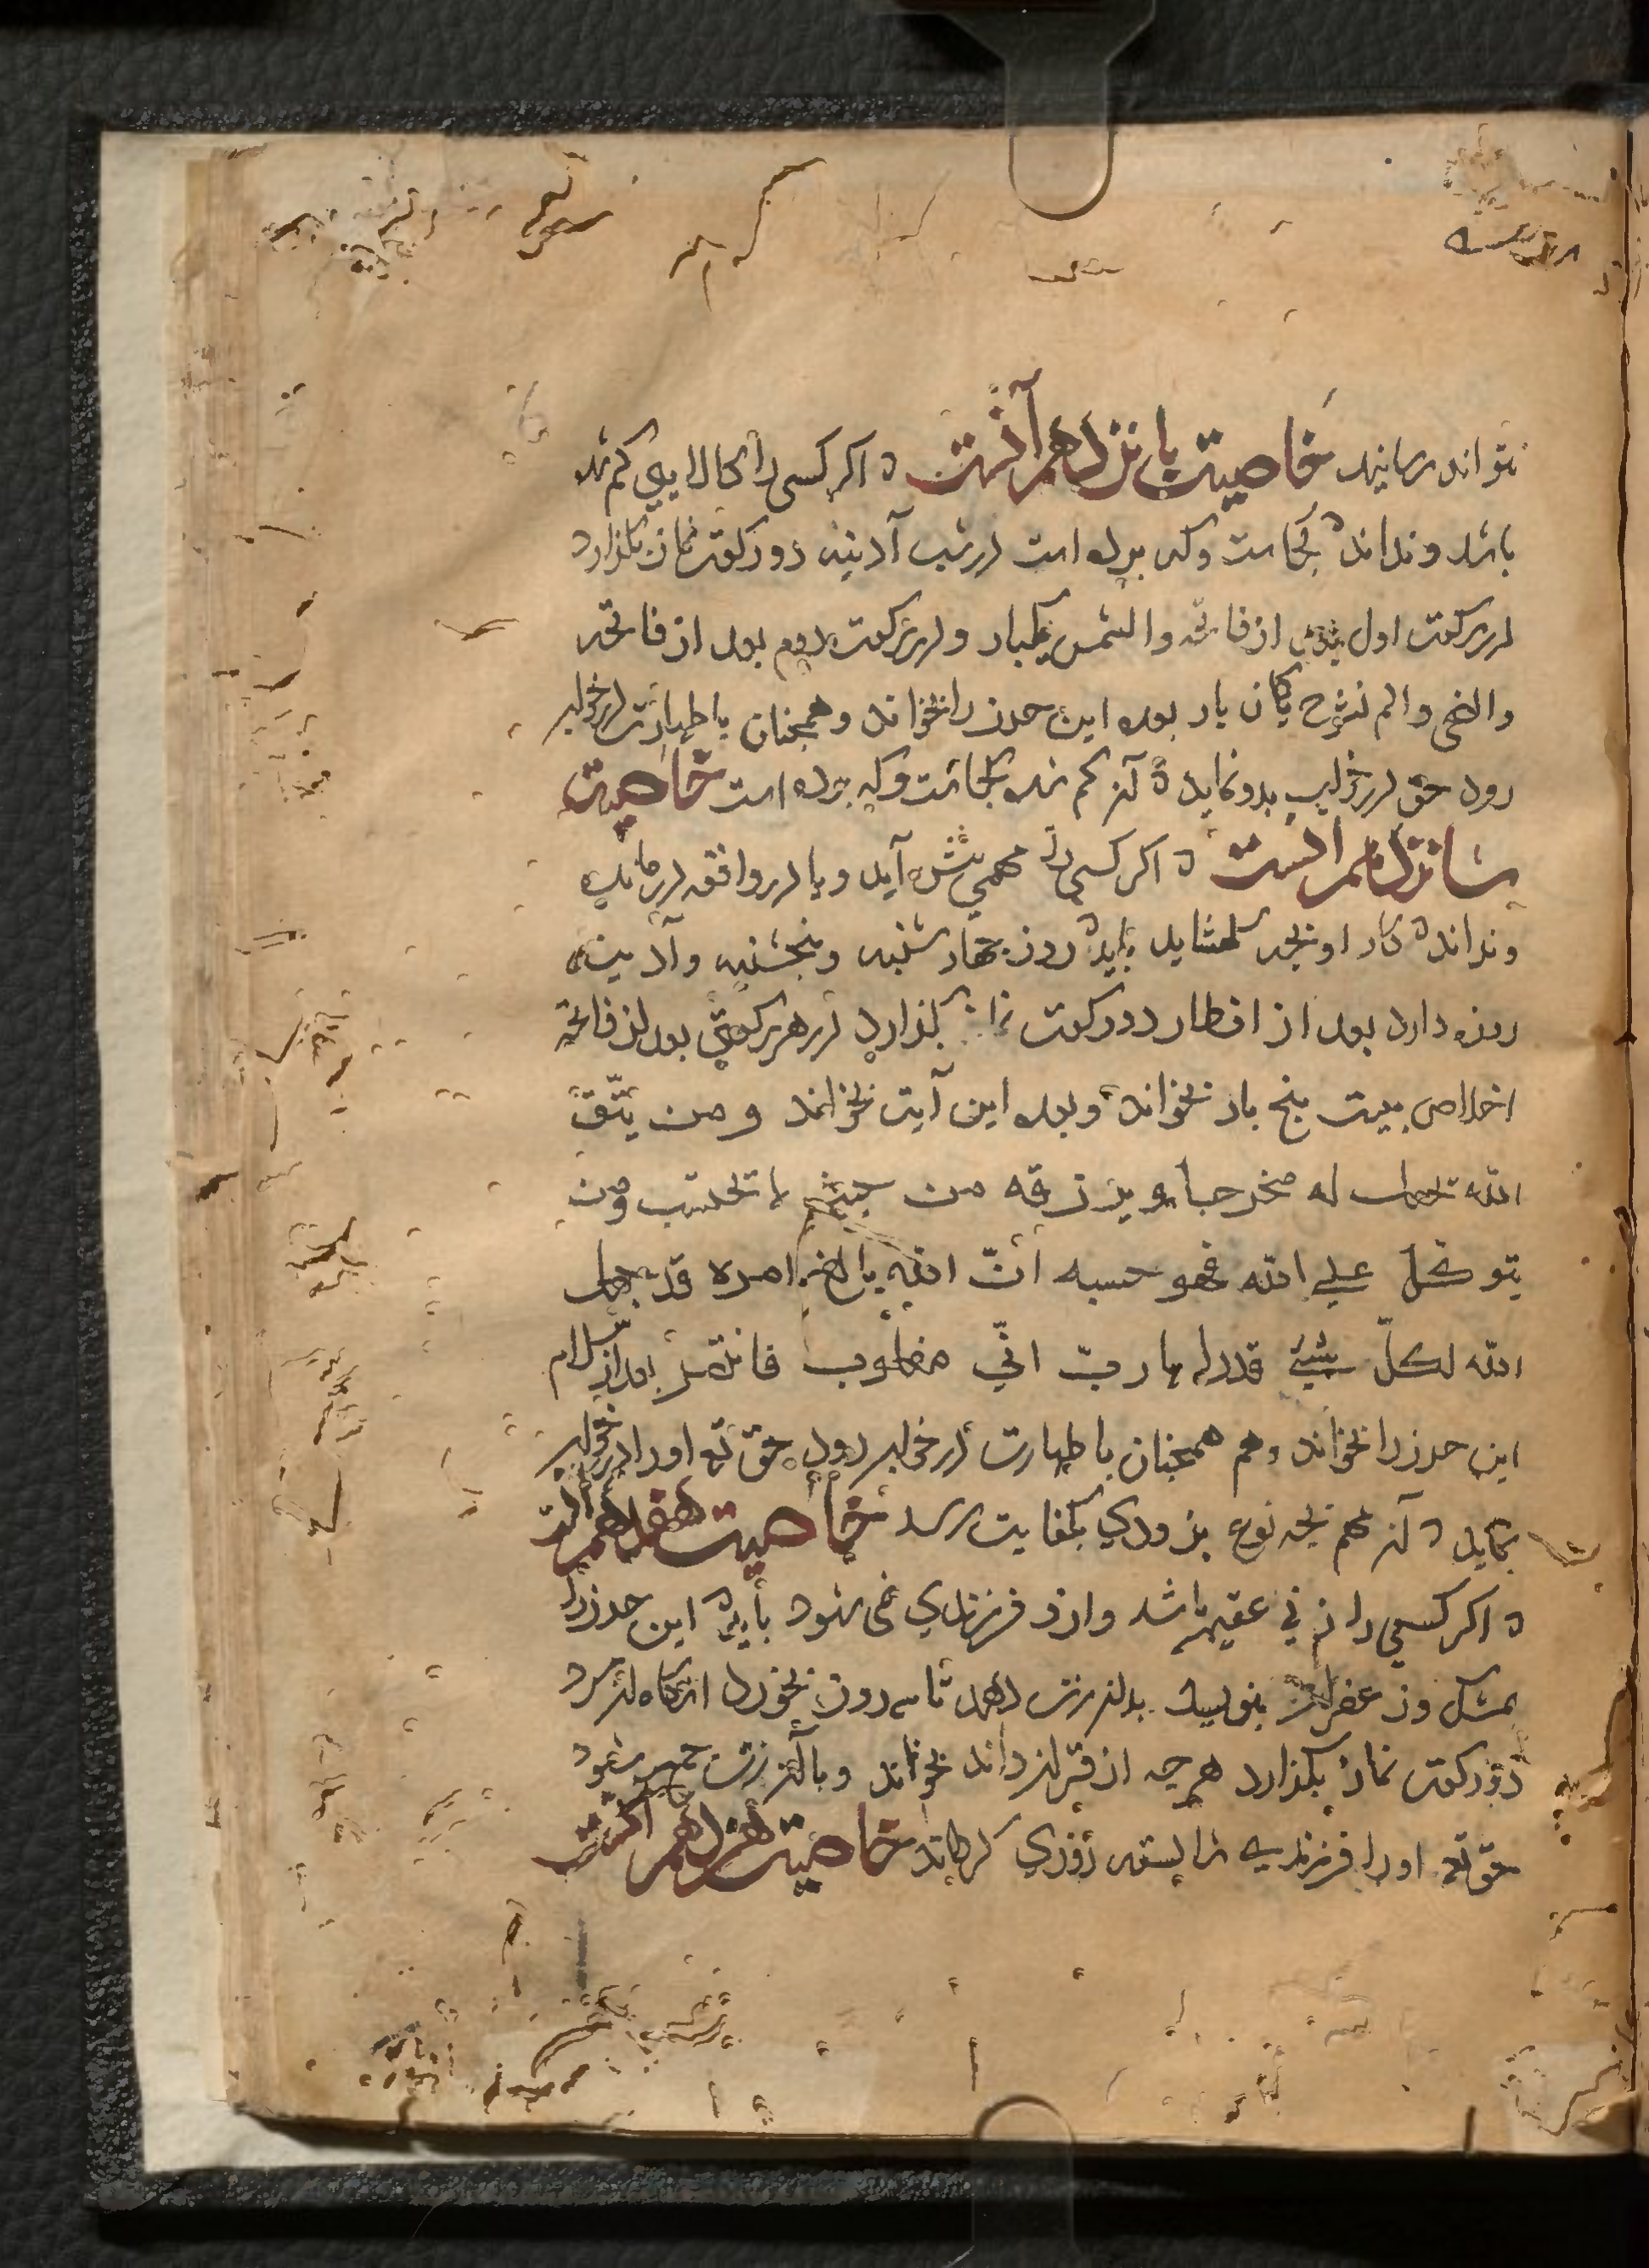 نتواند رسانید خاصیت پانزدهم آنست ه اکر کسی را کالایی کم شده
باشد و نداند ه کجاست وکه برده است در شب آدینه دو رکعت نماز بکذارد
در رکعت اول بعد از فاتحه والشمس یکبار و در رکعت دوم بعد از فاتحه
والضحی والم نشرح یکان بار بعده این حرز را بخواند و همچنان با طهارت در خواب
رود حق در خواب بدو نماید ه آنز کم شده کجاست وکه برده است خاصیت
شانزدهم آنست ه اکر کسی را مهمی پیش آید و یا در واقعه درماند
و نداند ه کار او بچه کشاید باید ه روز چهارشنبه و پنجشنبه و آدینه
روزه دارد بعد از افطار دو رکعت نماز بکذارد در هر رکعتی بعد از فاتحه
اخلاص بیست پنج بار بخواند و بعده این آیت بخواند و من یتّق
الله یجعل له مخرجا و یرزقه من حیث لا یحتسب ومن
یتوکّل علی الله فهو حسبه انّ الله بالغ امره قد جعل
الله لکلّ شیئ قدرا یا ربّ انّی مغلوب فانتصر بعد از سلام
این حرز را بخواند و هم همچنان با طهارت در خواب رود حق تع او را در خواب
نماید ه آنز مهم بچه نوع بزودی بکفایت رسد خاصیت هفدهم آنست
ه اکر کسی را زنی عقیم باشد و ازو فرزندی نمی شود باید ه این حرز را
بمشک و زعفران بنویسد بدان زن دهد تا سه روز بخورد آنکاه آنمرد
دو رکعت نماز بکذارد هرچه از قرآن داند بخواند و با آنزن جمع شود
حق تع او را فرزندی شایسته روزی کرداند خاصیت هژدهم آنست